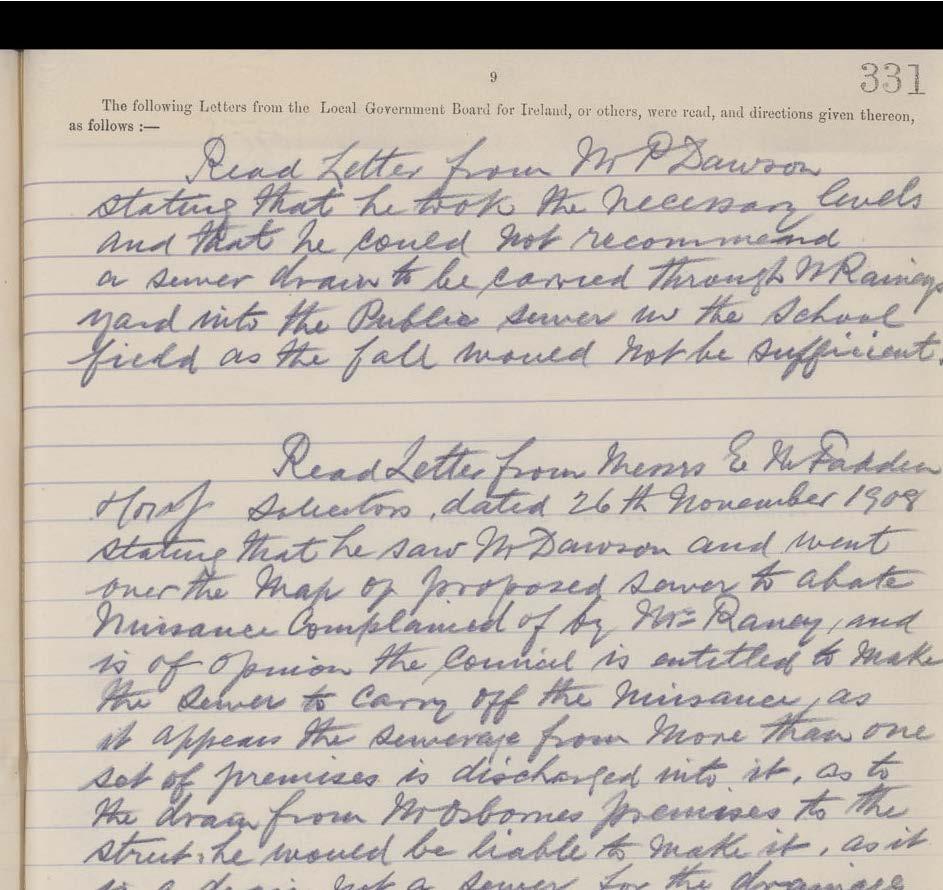 9
331
The following Letters from the Local Government Board for Ireland, or others, were read, and directions given thereon,
as follows :—
Read Letter from Mr P Dawson
stating that he took the necessary levels
and that he could not recommend
a sewer drain to be carried through Mr Raineys
yard into the Public sewer in the School
field as the fall would not be sufficient.
Read Letter from Messrs E McFadden
Solicitors, dated 26th November 1908
stating that he saw Mr Dawson and went
over the Map of proposed sewer to abate
Nuisance Complained of by Mrs Raney, and
is of opinion the Council is entitled to Make
the Sewer to Carry off the Nuisance, as
it appears the sewerage from More than one
set of premises is discharged into it, as to
the drain from Mr Osbornes premises to the
street, he would be liable to Make it, as it
is a drain not a sewer for the drainage